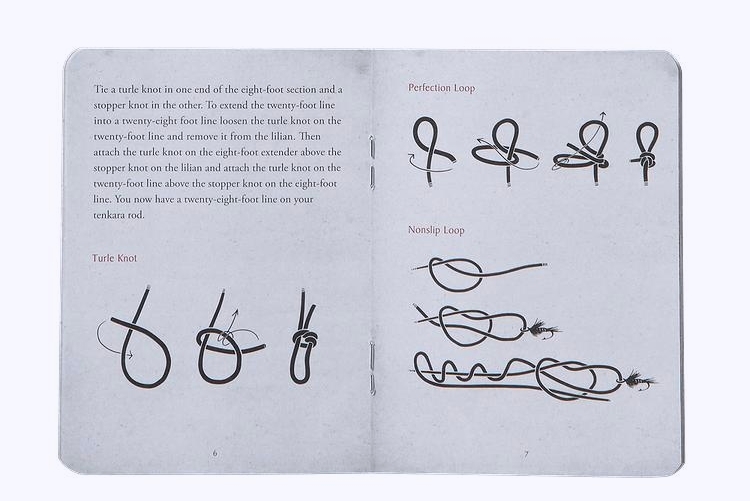 Tie a turle knot in one end of the eight-foot section and a
stopper knot in the other. To extend the twenty-foot line
into a twenty-eight foot line loosen the turle knot on the
twenty-foot line and remove it from the lilian. Then
attach the turle knot on the eight-foot extender above the
stopper knot on the lilian and attach the turle knot on the
twenty-foot line above the stopper knot on the eight-foot
line. You now have a twenty-eight-foot line on your
tenkara rod.
Turle Knot
6
Perfection Loop
Nonslip Loop
7